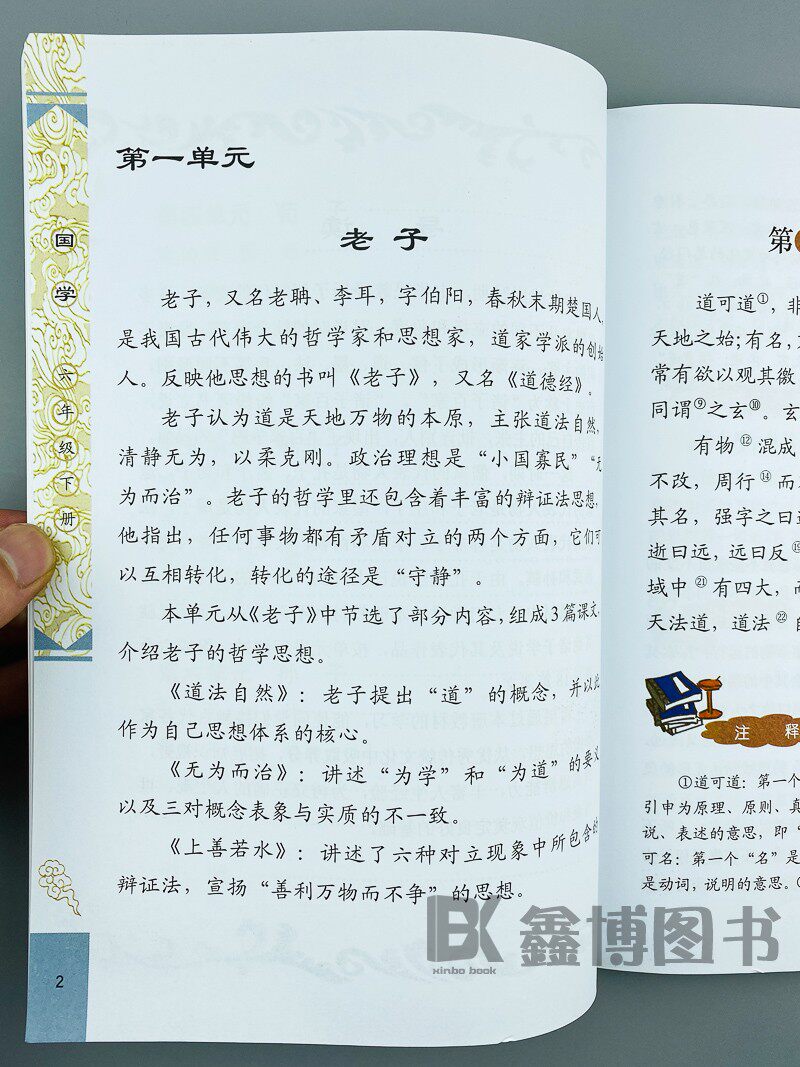 国学 六年级下册
第一单元
老子
老子，又名老聃、李耳，字伯阳，春秋末期楚国人，
是我国古代伟大的哲学家和思想家，道家学派的创始
人。反映他思想的书叫《老子》，又名《道德经》。
老子认为道是天地万物的本原，主张道法自然，
清静无为，以柔克刚。政治理想是“小国寡民”“无
为而治”。老子的哲学里还包含着丰富的辩证法思想，
他指出，任何事物都有矛盾对立的两个方面，它们可
以互相转化，转化的途径是“守静”。
本单元从《老子》中节选了部分内容，组成3篇课文，
介绍老子的哲学思想。
《道法自然》：老子提出“道”的概念，并以此
作为自己思想体系的核心。
《无为而治》：讲述“为学”和“为道”的要义
以及三对概念表象与实质的不一致。
《上善若水》：讲述了六种对立现象中所包含的
辩证法，宣扬“善利万物而不争”的思想。
2
第
道可道①，非
天地之始；有名，
常有欲以观其徼
同谓⑨之玄⑩。玄
有物⑫混成
不改，周行⑭而
其名，强字之曰
逝曰远，远曰反
域中㉑有四大，而
天法道，道法㉒自
注释
①道可道：第一个
引申为原理、原则、真
说、表述的意思，即“
可名：第一个“名”是
是动词，说明的意思。
BK 鑫博图书
xinbo book